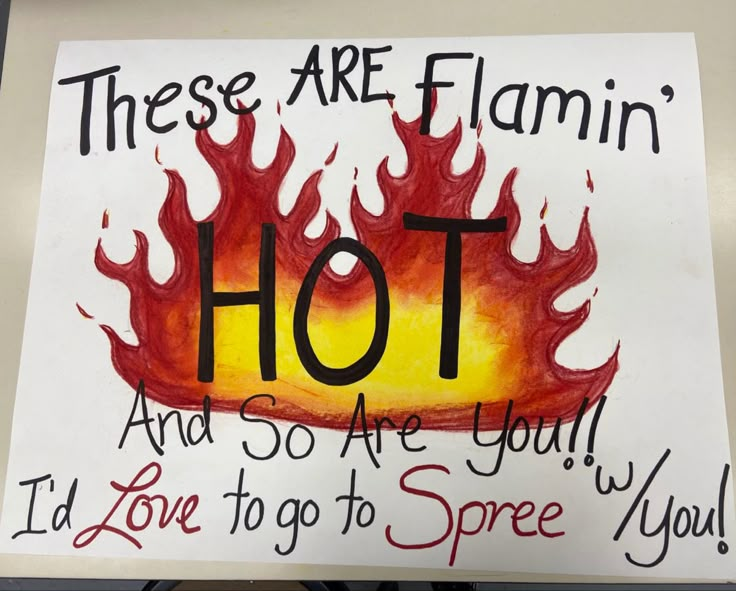 These ARE Flamin'
HOT
And So Are You!!
I'd Love to go to Spree w/you!